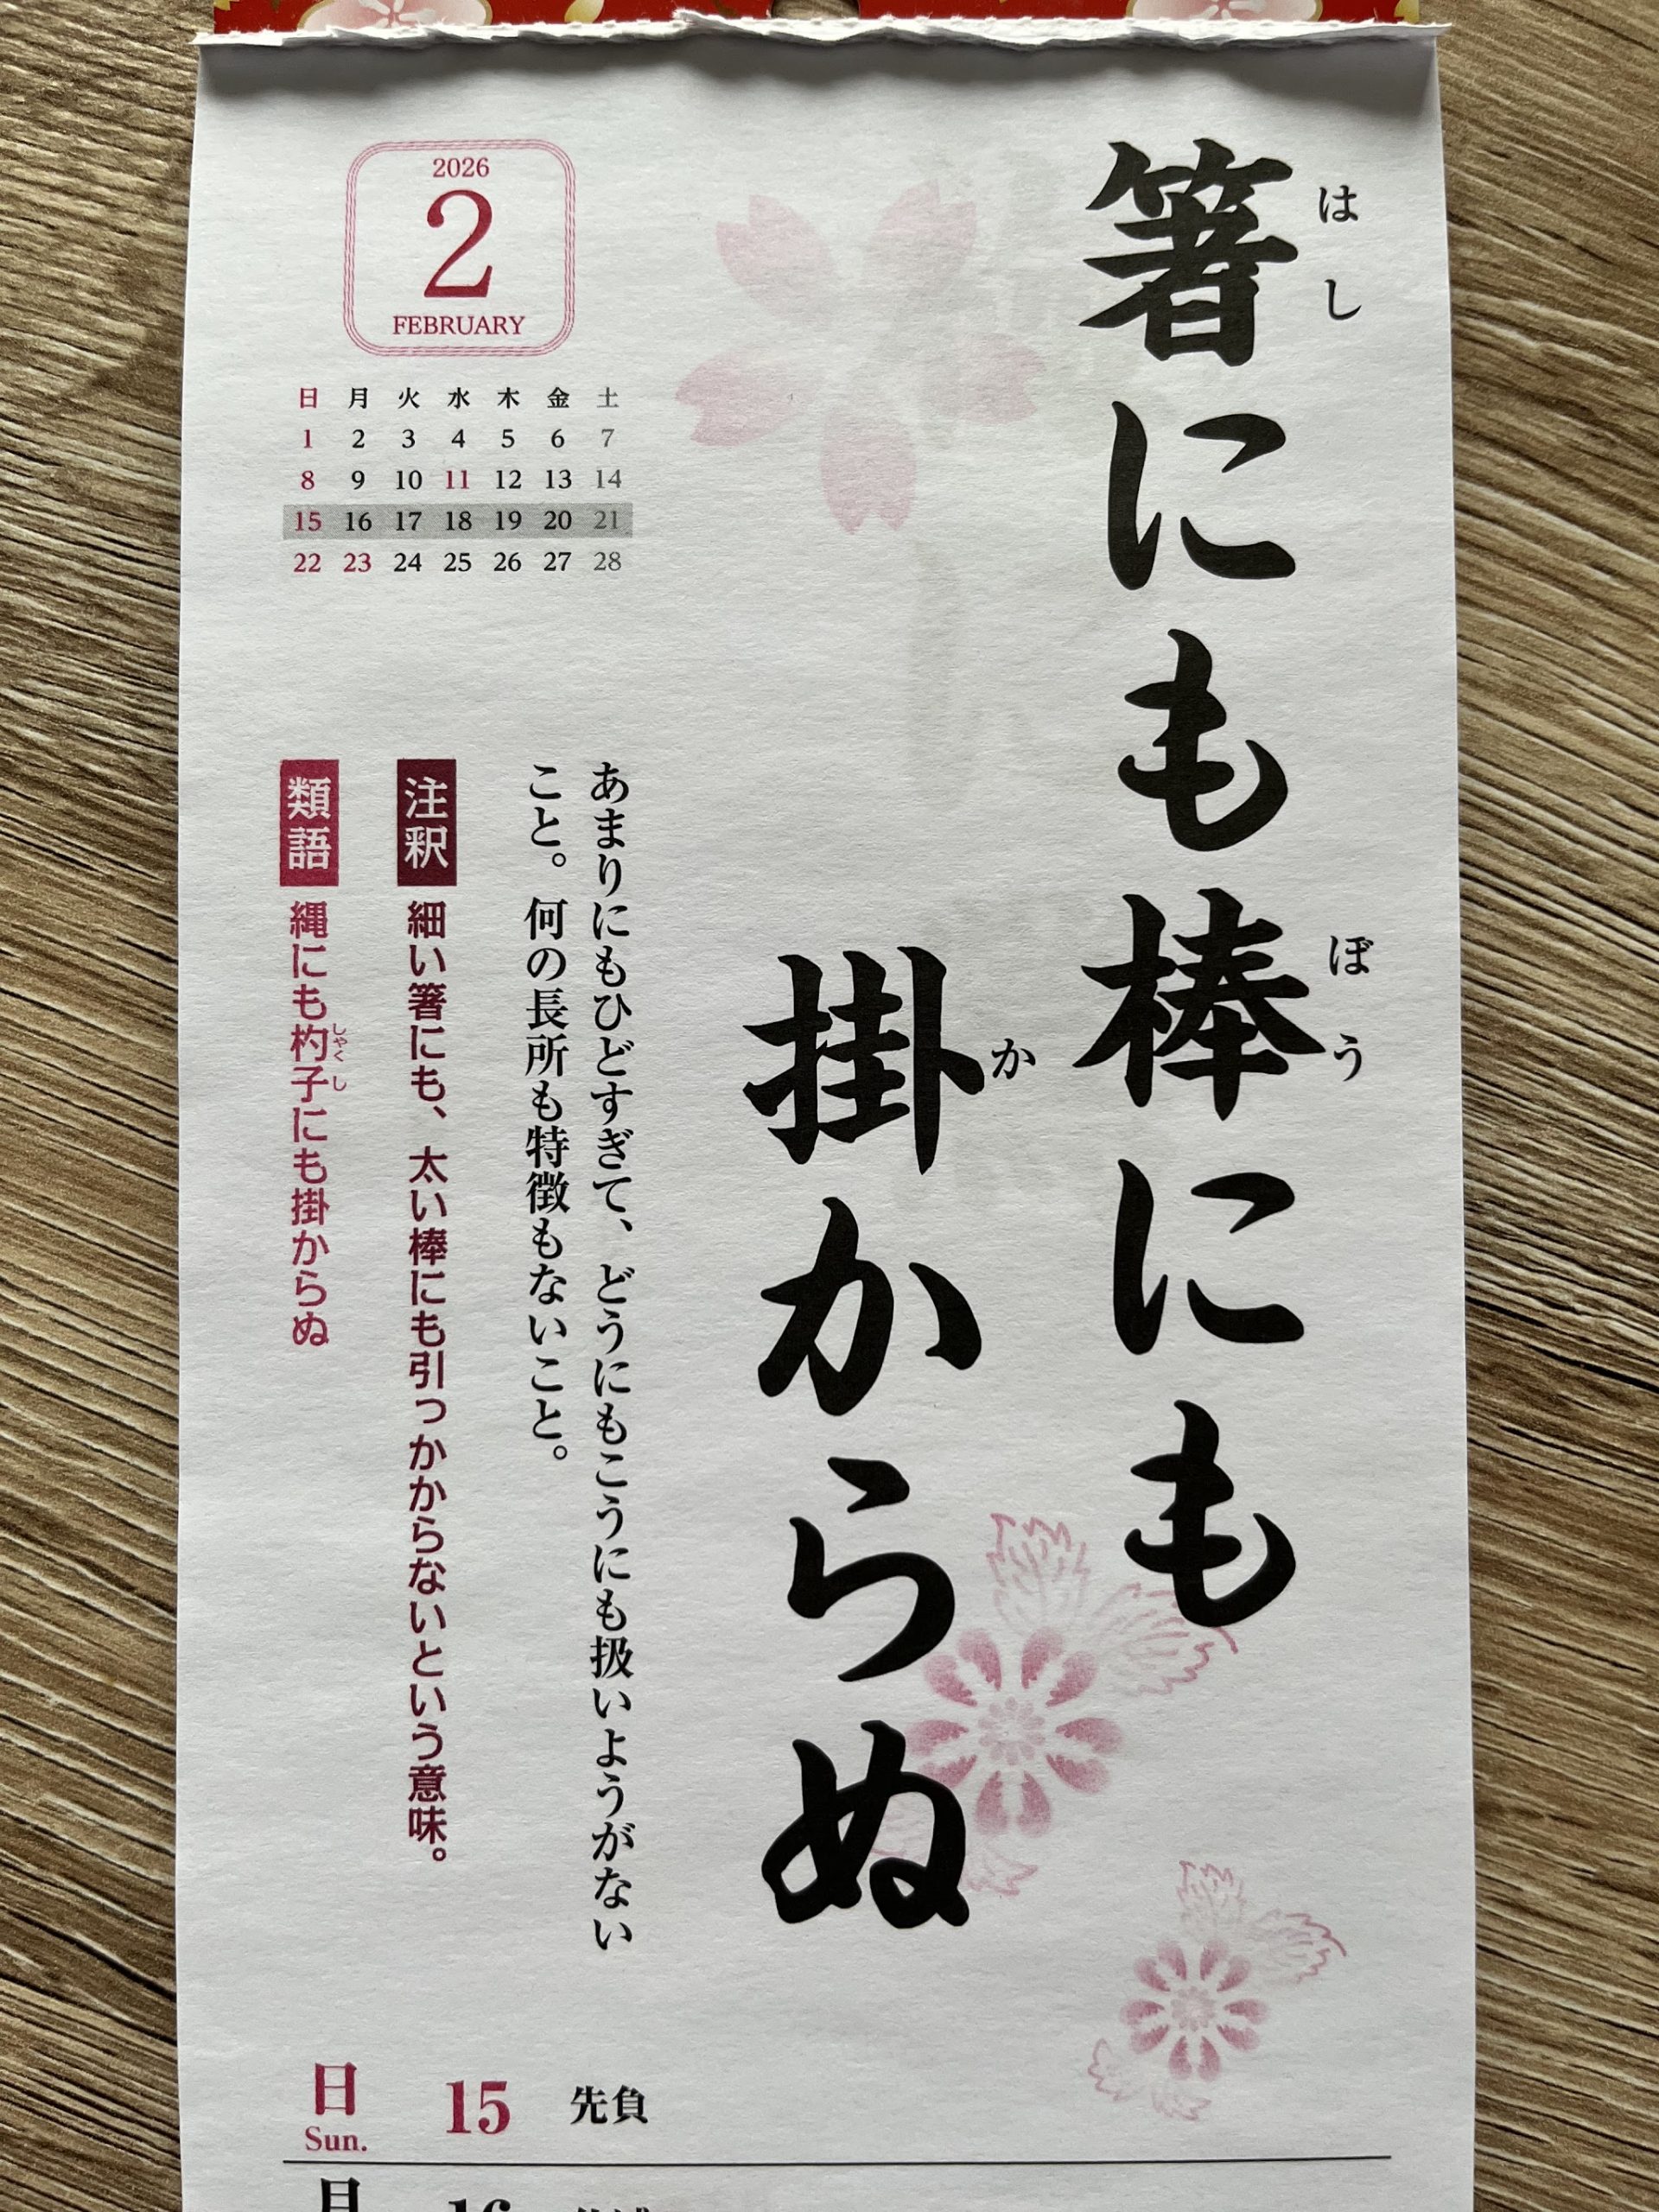 箸にも棒にも
掛からぬ
はし
ぼう
か
2026
2
FEBRUARY
日 月 火 水 木 金 土
1 2 3 4 5 6 7
8 9 10 11 12 13 14
15 16 17 18 19 20 21
22 23 24 25 26 27 28
あまりにもひどすぎて、どうにもこうにも扱いようがない
こと。何の長所も特徴もないこと。
注釈 細い箸にも、太い棒にも引っかからないという意味。
類語 縄にも杓子にも掛からぬ
しゃくし
日 15 先負
Sun.
月 16